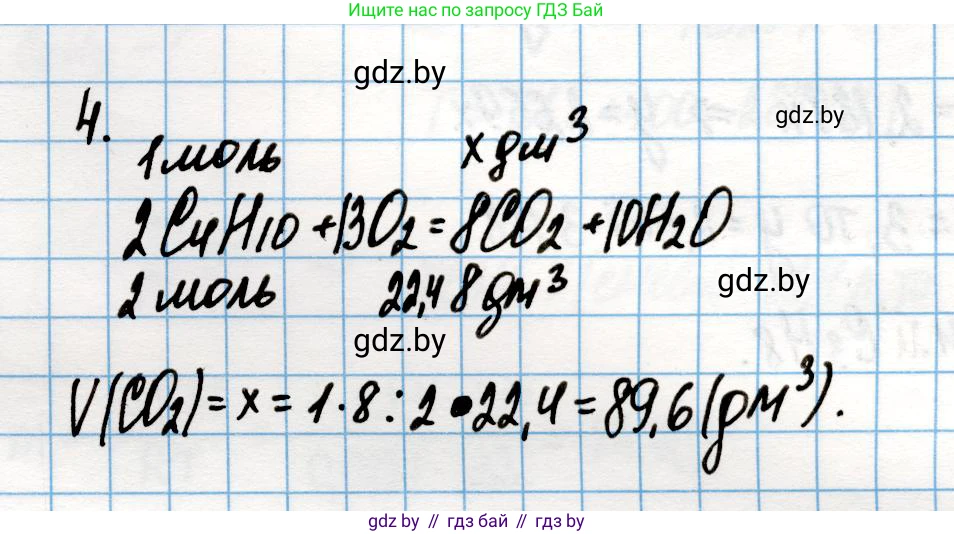 Ищите нас по запросу ГДЗ Бай
gdz.by
gdz.by
4.
1 моль x дм³
2C4H10 + 13O2 = 8CO2 + 10H2O
2 моль 22,4 8 дм³
gdz.by
gdz.by
V(CO2) = x = 1 · 8 : 2 • 22,4 = 89,6 (дм³).
gdz by // гдз бай // gdz by